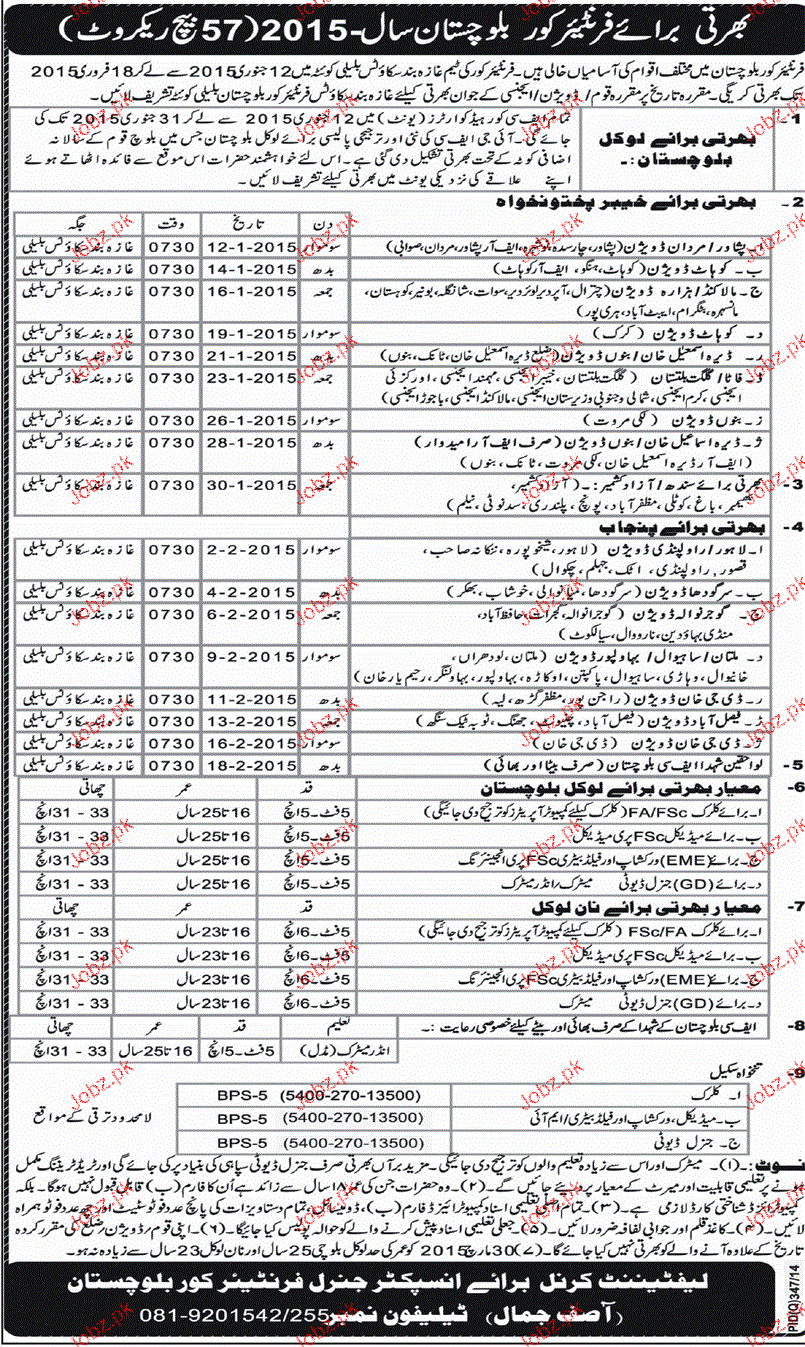 بھرتی برائے فرنٹیئر کور بلوچستان سال-2015 (57 بیچ ریکروٹ)
فرنٹیئر کور بلوچستان میں مختلف اقوام کی آسامیاں خالی ہیں۔ فرنٹیئر کور کی ٹیم غازہ بند سکاؤٹس بلیلی کوئٹہ میں 12 جنوری 2015 سے لے کر 18 فروری 2015
تک بھرتی کریگی۔ مقررہ تاریخ پر مقررہ قوم / ڈویژن / ایجنسی کے جوان بھرتی کیلئے غازہ بند سکاؤٹس فرنٹیئر کور بلوچستان بلیلی کوئٹہ تشریف لائیں۔
1- بھرتی برائے لوکل بلوچستان:۔
تمام ایف سی کور ہیڈ کوارٹرز (یونٹ) میں 12 جنوری 2015 سے لے کر 31 جنوری 2015 تک کی
جائے گی۔ آئی جی ایف سی کی نئی اور ترجیحی پالیسی برائے لوکل بلوچستان جس میں بلوچ قوم کے سالانہ
اضافی کوٹہ کے تحت بھرتی تشکیل دی گئی ہے۔ اس لئے خواہشمند حضرات اس موقع سے فائدہ اٹھاتے ہوئے
اپنے علاقے کی نزدیکی یونٹ میں بھرتی کیلئے تشریف لائیں۔
2- بھرتی برائے خیبر پختونخواہ
دن تاریخ وقت جگہ
ا۔ پشاور / مردان ڈویژن (پشاور، چارسدہ، نوشہرہ، ایف آر پشاور، مردان، صوابی) سوموار 12-1-2015 0730 غازہ بند سکاؤٹس بلیلی
ب۔ کوہاٹ ڈویژن (کوہاٹ، ہنگو، ایف آر کوہاٹ) بدھ 14-1-2015 0730 غازہ بند سکاؤٹس بلیلی
ج۔ مالاکنڈ / ہزارہ ڈویژن (چترال، اَپر دیر، لوئر دیر، سوات، شانگلہ، بونیر، کوہستان، جمعہ 16-1-2015 0730 غازہ بند سکاؤٹس بلیلی
مانسہرہ، بٹگرام، ایبٹ آباد، ہری پور)
د۔ کوہاٹ ڈویژن (کرک) سوموار 19-1-2015 0730 غازہ بند سکاؤٹس بلیلی
ر۔ ڈیرہ اسمعیل خان / بنوں ڈویژن (ضلع ڈیرہ اسمعیل خان، ٹانک، بنوں) بدھ 21-1-2015 0730 غازہ بند سکاؤٹس بلیلی
ڑ۔ فاٹا / گلگت بلتستان (گلگت بلتستان، خیبر ایجنسی، مہمند ایجنسی، اورکزئی جمعہ 23-1-2015 0730 غازہ بند سکاؤٹس بلیلی
ایجنسی، کرم ایجنسی، شمالی و جنوبی وزیرستان ایجنسی، مالاکنڈ ایجنسی، باجوڑ ایجنسی)
ز۔ بنوں ڈویژن (لکی مروت) سوموار 26-1-2015 0730 غازہ بند سکاؤٹس بلیلی
ژ۔ ڈیرہ اسماعیل خان / بنوں ڈویژن (صرف ایف آر امیدوار) بدھ 28-1-2015 0730 غازہ بند سکاؤٹس بلیلی
(ایف آر ڈیرہ اسمعیل خان، لکی مروت، ٹانک، بنوں)
3- بھرتی برائے سندھ / آزاد کشمیر:۔ (آزاد کشمیر، جمعہ 30-1-2015 0730 غازہ بند سکاؤٹس بلیلی
بھیمبر، باغ، کوٹلی، مظفر آباد، پونچ، پلندری، سدنوتی، نیلم)
4- بھرتی برائے پنجاب
ا۔ لاہور / راولپنڈی ڈویژن (لاہور، شیخوپورہ، ننکانہ صاحب، سوموار 2-2-2015 0730 غازہ بند سکاؤٹس بلیلی
قصور، راولپنڈی، اٹک، جہلم، چکوال)
ب۔ سرگودھا ڈویژن (سرگودھا، میانوالی، خوشاب، بھکر) بدھ 4-2-2015 0730 غازہ بند سکاؤٹس بلیلی
ج۔ گوجرنوالہ ڈویژن (گوجرانوالہ، گجرات، حافظ آباد، جمعہ 6-2-2015 0730 غازہ بند سکاؤٹس بلیلی
منڈی بہاؤدین، نارووال، سیالکوٹ)
د۔ ملتان / ساہیوال / بہاولپور ڈویژن (ملتان، لودھراں، سوموار 9-2-2015 0730 غازہ بند سکاؤٹس بلیلی
خانیوال، وہاڑی، ساہیوال، پاکپتن، اوکاڑہ، بہاولپور، بہاولنگر، رحیم یار خان)
ر۔ ڈی جی خان ڈویژن (راجن پور، مظفر گڑھ، لیہ) بدھ 11-2-2015 0730 غازہ بند سکاؤٹس بلیلی
ز۔ فیصل آباد ڈویژن (فیصل آباد، چنیوٹ، جھنگ، ٹوبہ ٹیک سنگھ) جمعہ 13-2-2015 0730 غازہ بند سکاؤٹس بلیلی
ژ۔ ڈی جی خان ڈویژن (ڈی جی خان) سوموار 16-2-2015 0730 غازہ بند سکاؤٹس بلیلی
5- لواحقین شہدا ایف سی بلوچستان (صرف بیٹا اور بھائی) بدھ 18-2-2015 0730 غازہ بند سکاؤٹس بلیلی
6- معیار بھرتی برائے لوکل بلوچستان قد عمر چھاتی
ا۔ برائے کلرک FA/FSc (کلرک کیلئے کمپیوٹر آپریٹرز کو ترجیح دی جائیگی) 5فٹ-5انچ 16 تا 25 سال 33 - 31 انچ
ب۔ برائے میڈیکل FSc پری میڈیکل 5فٹ-5انچ 16 تا 25 سال 33 - 31 انچ
ج۔ برائے (EME) ورکشاپ اور فیلڈ بیٹری FSc پری انجینئرنگ 5فٹ-5انچ 16 تا 25 سال 33 - 31 انچ
د۔ برائے (GD) جنرل ڈیوٹی میٹرک / انڈر میٹرک 5فٹ-5انچ 16 تا 25 سال 33 - 31 انچ
7- معیار بھرتی برائے نان لوکل قد عمر چھاتی
ا۔ برائے کلرک FSc/FA (کلرک کیلئے کمپیوٹر آپریٹرز کو ترجیح دی جائیگی) 5فٹ-6انچ 16 تا 23 سال 33 - 31 انچ
ب۔ برائے میڈیکل FSc پری میڈیکل 5فٹ-6انچ 16 تا 23 سال 33 - 31 انچ
ج۔ برائے (EME) ورکشاپ اور فیلڈ بیٹری FSc پری انجینئرنگ 5فٹ-6انچ 16 تا 23 سال 33 - 31 انچ
د۔ برائے (GD) جنرل ڈیوٹی میٹرک 5فٹ-6انچ 16 تا 23 سال 33 - 31 انچ
8- ایف سی بلوچستان کے شہدا کے صرف بھائی اور بیٹے کیلئے خصوصی رعایت:۔ تعلیم قد عمر چھاتی
انڈر میٹرک (مڈل) 5فٹ-5انچ 16 تا 25 سال 33 - 31 انچ
9- تنخواہ سکیل
ا۔ کلرک BPS-5 (5400-270-13500)
ب۔ میڈیکل، ورکشاپ اور فیلڈ بیٹری / ایم آئی BPS-5 (5400-270-13500) لامحدود ترقی کے مواقع
ج۔ جنرل ڈیوٹی BPS-5 (5400-270-13500)
نوٹ:۔ (۱)۔ میٹرک اور اس سے زیادہ تعلیم والوں کو ترجیح دی جائیگی۔ مزید برآں بھرتی صرف جنرل ڈیوٹی سپاہی کی بنیاد پر کی جائے گی اور ٹریڈ ٹریننگ مکمل
ہونے پر تعلیمی قابلیت اور میرٹ کے معیار پر دیئے جائیں گے۔ (۲)۔ وہ حضرات جن کی عمر ۱۸ سال سے زائد ہے اُن کا فارم (ب) قابل قبول نہیں ہوگا۔ بلکہ
کمپیوٹرائزڈ شناختی کارڈ لازمی ہے۔ (۳)۔ تمام اصلی تعلیمی اسناد کمپیوٹرائیزڈ فارم (ب)، ڈومیسائل، تمام دستاویزات کی پانچ عدد فوٹو سٹیٹ اور چھ عدد فوٹو ہمراہ
لائیں۔ (۴)۔ کاغذ قلم اور جوابی لفافہ ضرور لائیں۔ (۵)۔ جعلی تعلیمی اسناد پیش کرنے والے کو حوالہ پولیس کیا جائیگا۔ (۶)۔ اپنی قوم / ڈویژن / ضلع کی مقرر کردہ
تاریخ کے علاوہ آنے والے کو بھرتی نہیں کیا جائے گا۔ (۷) 30 مارچ 2015 کو عمر کی حد لوکل بلوچی 25 سال اور نان لوکل 23 سال سے زیادہ نہ ہو۔
لیفٹیننٹ کرنل برائے انسپکٹر جنرل فرنٹیئر کور بلوچستان
(آصف جمال) ٹیلیفون نمبر 081-9201542/255
PID(Q)347/14
Jobz.pk